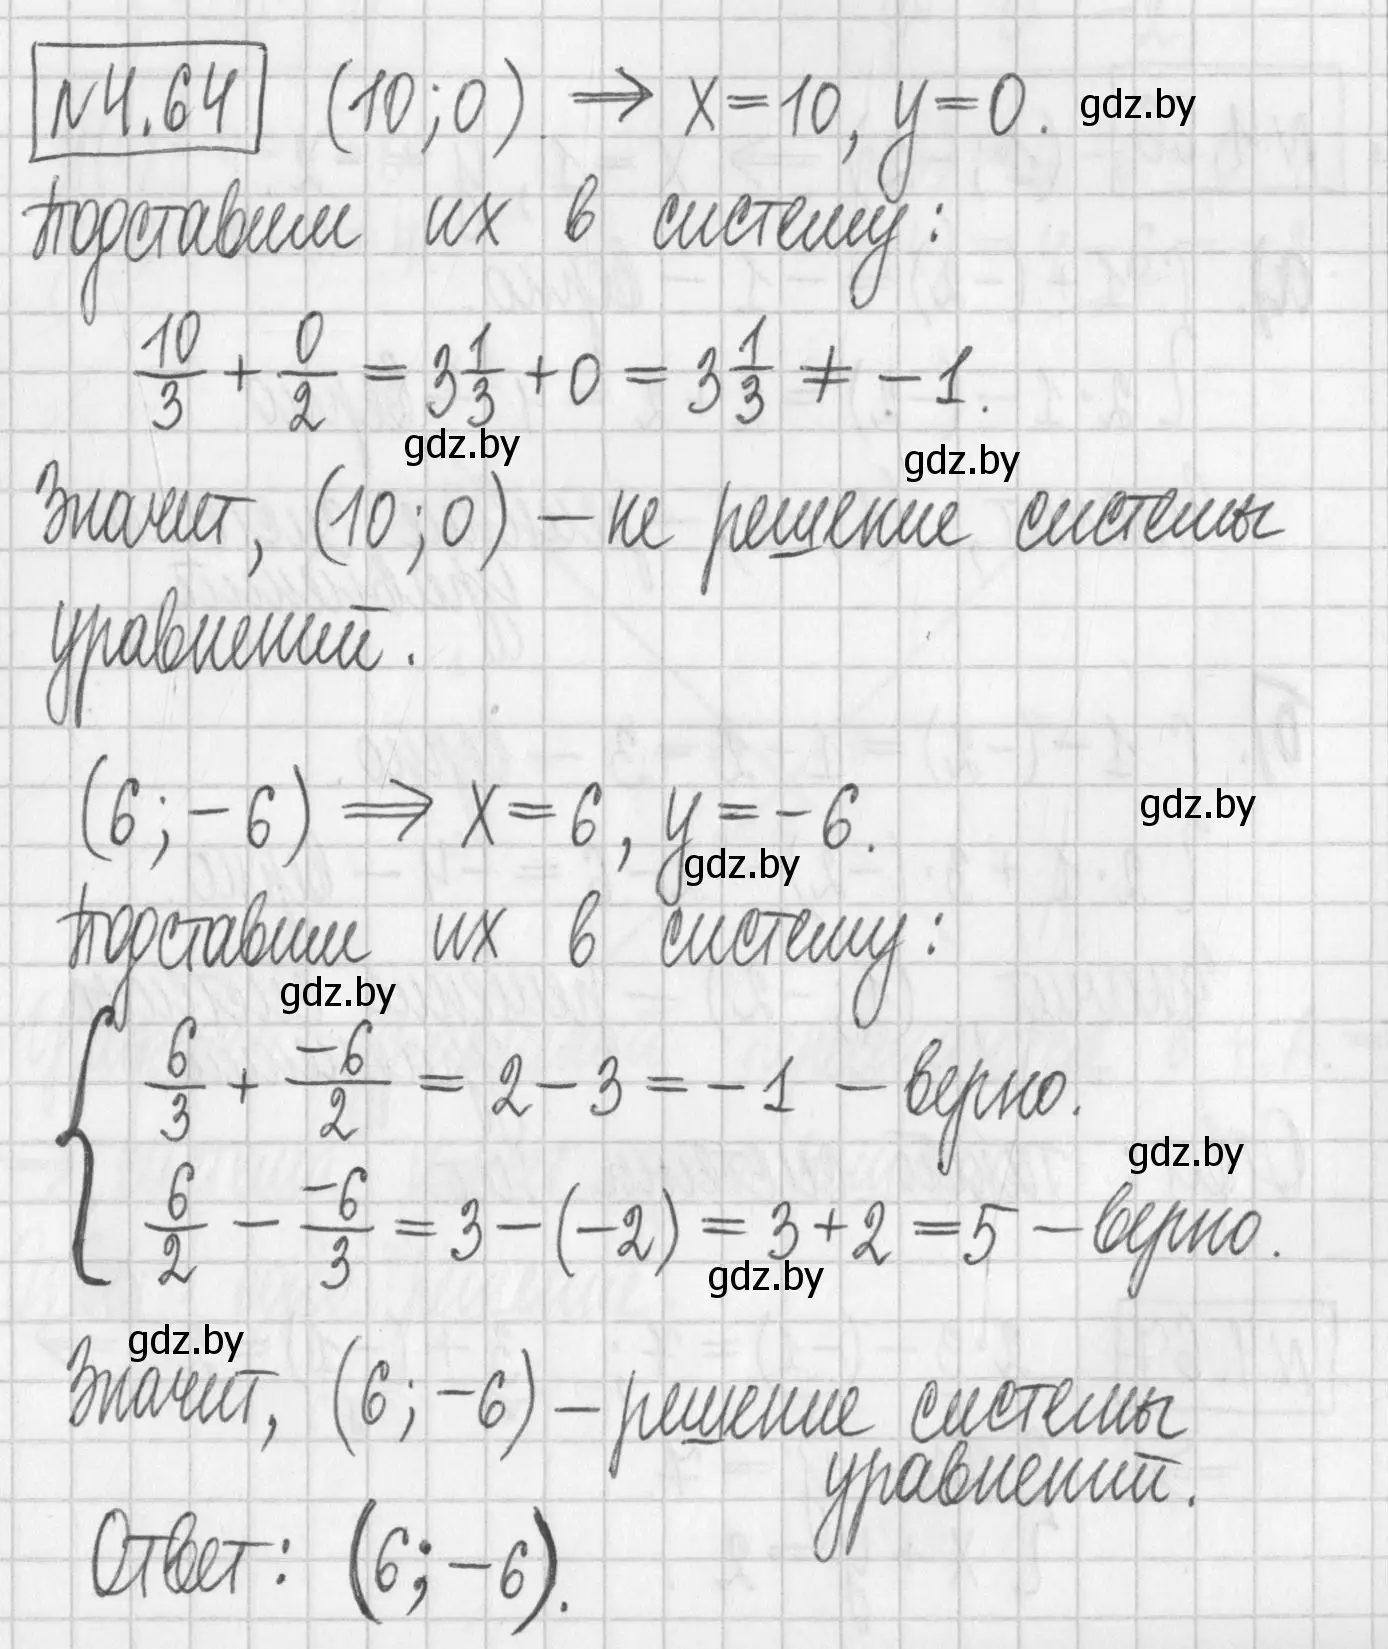 №4.64 (10;0). ⇒ x=10, y=0. gdz.by
Подставим их в систему:
10/3 + 0/2 = 3 1/3 + 0 = 3 1/3 ≠ -1.
gdz.by gdz.by
Значит, (10;0) – не решение системы
уравнений.
(6;-6) ⇒ x=6, y=-6. gdz.by
gdz.by
Подставим их в систему:
gdz.by
{ 6/3 + -6/2 = 2-3 = -1 – верно.
gdz.by
6/2 - -6/3 = 3-(-2) = 3+2 = 5 – верно.
gdz.by
gdz.by
Значит, (6;-6) – решение системы
уравнений.
Ответ: (6;-6).